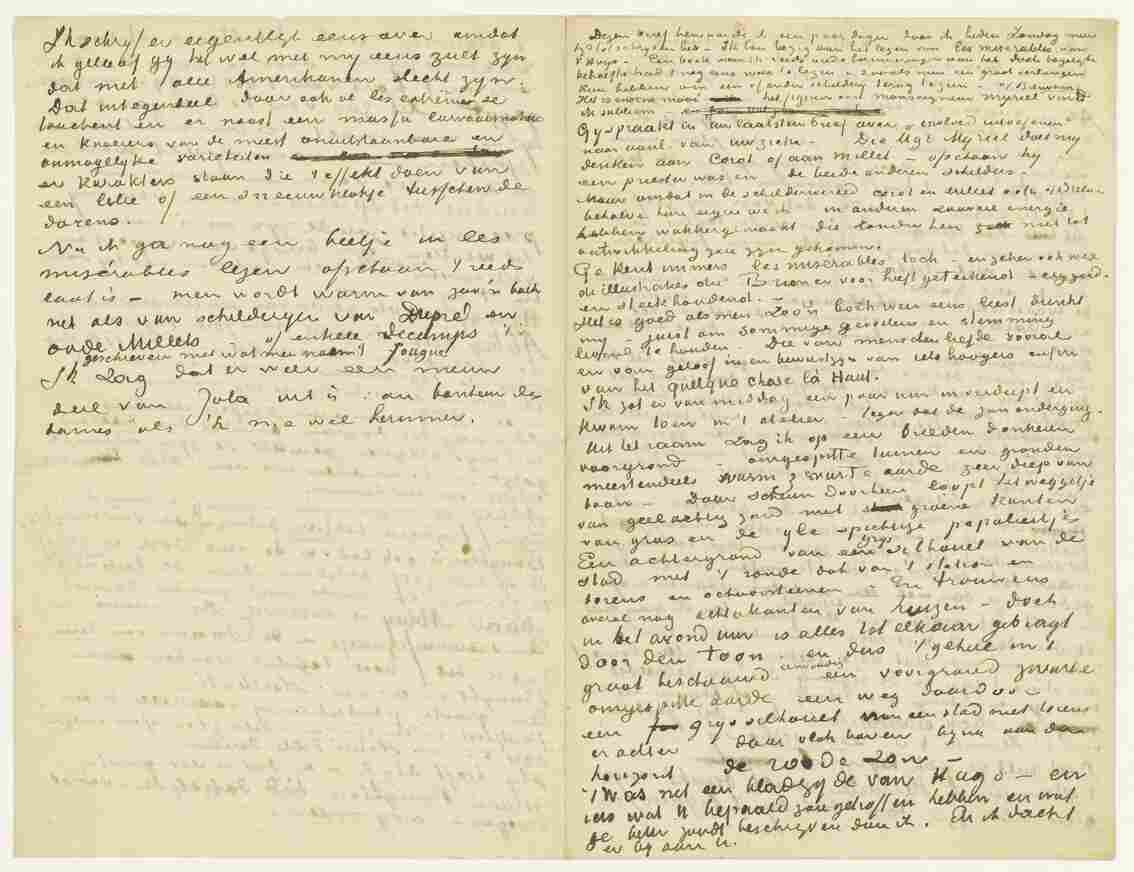 Ik schryf er eigentlyk eens over omdat
ik geloof gy het wel met my eens zult zyn
dat niet alle Amerikanen slecht zyn.
Dat integendeel daar ook al les extrêmes se
touchent en er naast een massa
en knoeiers van de meest onuitstaanbare en
onmogelyke varieteiten
er karakters staan die 't effekt doen van
een lelie of een sneeuwklokje tusschen de
dorens.
Nu ik ga nog een beetje in les
misérables lezen ofschoon 't reeds
laat is – men wordt warm van zoo'n boek
net als van schilderyen van Dupré en
oude Millets of enkele Decamps's
geschreven met wat men noemt fougue
Ik zag dat er weer een nieuw
deel van Zola uit is: au bonheur des
dames als 'k me wel herinner.
Dezen brief heb een paar dagen daar ik heden Zondag
Ik ben bezig aan het lezen van les misérables van
V Hugo. Een boek
behoefte had 't nog eens weer te lezen – zooals men een groot verlangen
kan hebben om een of ander schildery terug te zien.
Het is enorm mooi het figuur van monseigneur Myriel vind
ik subliem
Gy spraakt in uw laatsten brief over „invloed uitoefenen”
naar aanl. van uw zieke. Die Mgr Myriel doet my
denken aan Corot of aan Millet – ofschoon hy
een priester was en de beide anderen schilders.
Maar omdat in de schilderwereld Corot en Millet ook
behalve hun eigen werk in anderen zooveel energie
hebben wakkergemaakt die zonder hen niet tot
ontwikkeling zou zyn gekomen.
Ge kent immers les misérables toch – en zeker ook wel
de illustraties die Brion er voor heeft geteekend – erg goed
en steekhoudend.
Het is goed als men zoo'n boek weer eens leest dunkt
my – juist om sommige gevoelens en stemming
levend te houden. Die van menschenliefde vooral
en van geloof in en bewustzyn van iets hoogers enfin
van het quelque chose là Haut.
Ik zat er van middag een paar uur in verdiept en
kwam toen in 't atelier – tegen dat de zon onderging.
Uit het raam zag ik op een breeden donkeren
voorgrond – omgespitte tuinen en gronden
meestendeels warm zwarte aarde zeer diep van
toon – Daar schuin doorheen loopt het weggetje
van geelachtig zand met groene kanten
van gras en de yle spichtige populiertjes
Een achtergrond van een grys silhouet van de
stad met 't ronde dak van 't station en
torens en schoorsteenen – En trouwens
overal nog achterkanten van huizen – doch
in het avonduur is alles tot elkaar gebragt
door den toon. en dus 't geheel in 't
groot beschouwd eenvoudig een voorgrond zwarte
omgespitte aarde een weg daardoor
een grys silhouet van een stad met torens
er achter daar vlak boven byna aan den
horizont de roode zon –
't was net een bladzyde van Hugo – en
iets wat U bepaald zou getroffen hebben en wat
ge beter zoudt beschryven dan ik. En ik dacht
er by aan U.